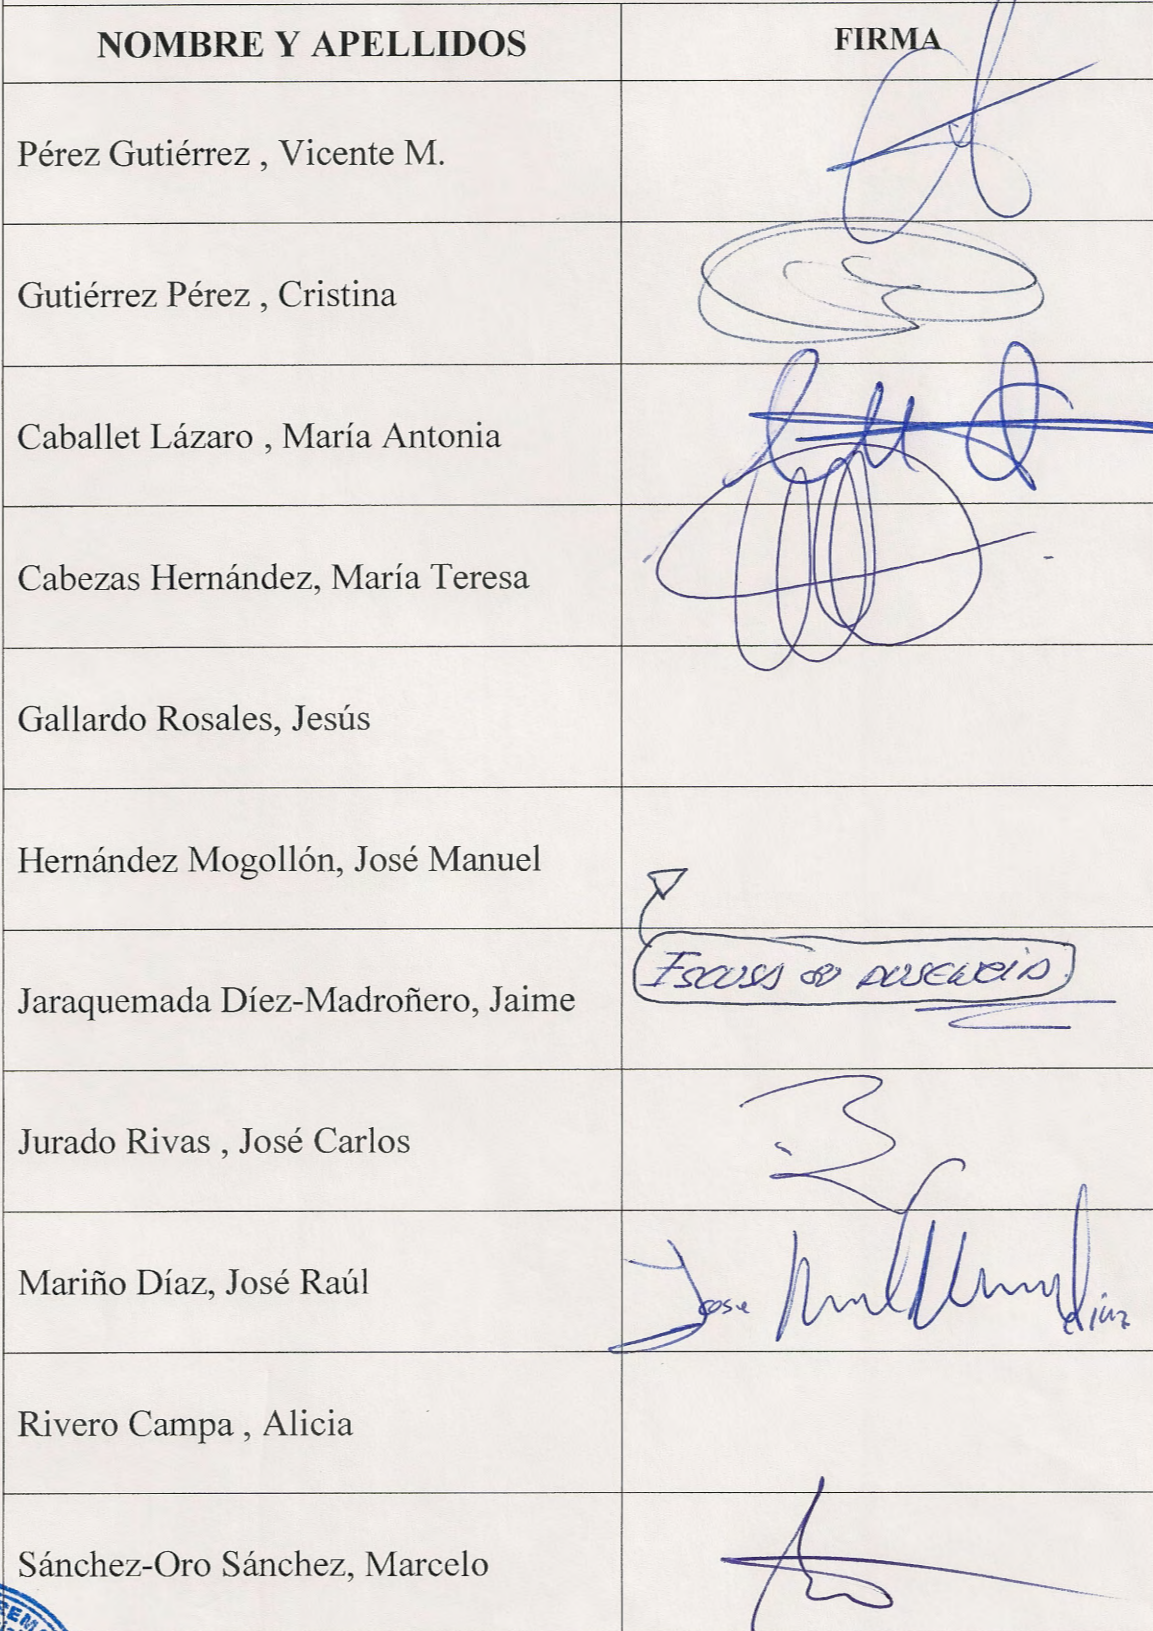 NOMBRE Y APELLIDOS FIRMA
Pérez Gutiérrez , Vicente M.
Gutiérrez Pérez , Cristina
Caballet Lázaro , María Antonia
Cabezas Hernández, María Teresa
Gallardo Rosales, Jesús
Hernández Mogollón, José Manuel
Jaraquemada Díez-Madroñero, Jaime
Excusa su ausencia
Jurado Rivas , José Carlos
Mariño Díaz, José Raúl
Jose díaz
Rivero Campa , Alicia
Sánchez-Oro Sánchez, Marcelo